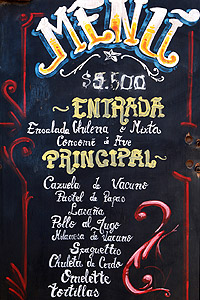 MENÚ
$5.500
~ENTRADA
Ensalada Chilena o Mixta
Consomé d Ave
PRINCIPAL~
Cazuela de Vacuno
Pastel de Papas
Lasaña
Pollo al Jugo
Milanesa de Vacuno
Spaguettis
Chuleta de Cerdo
Omelette
Tortillas